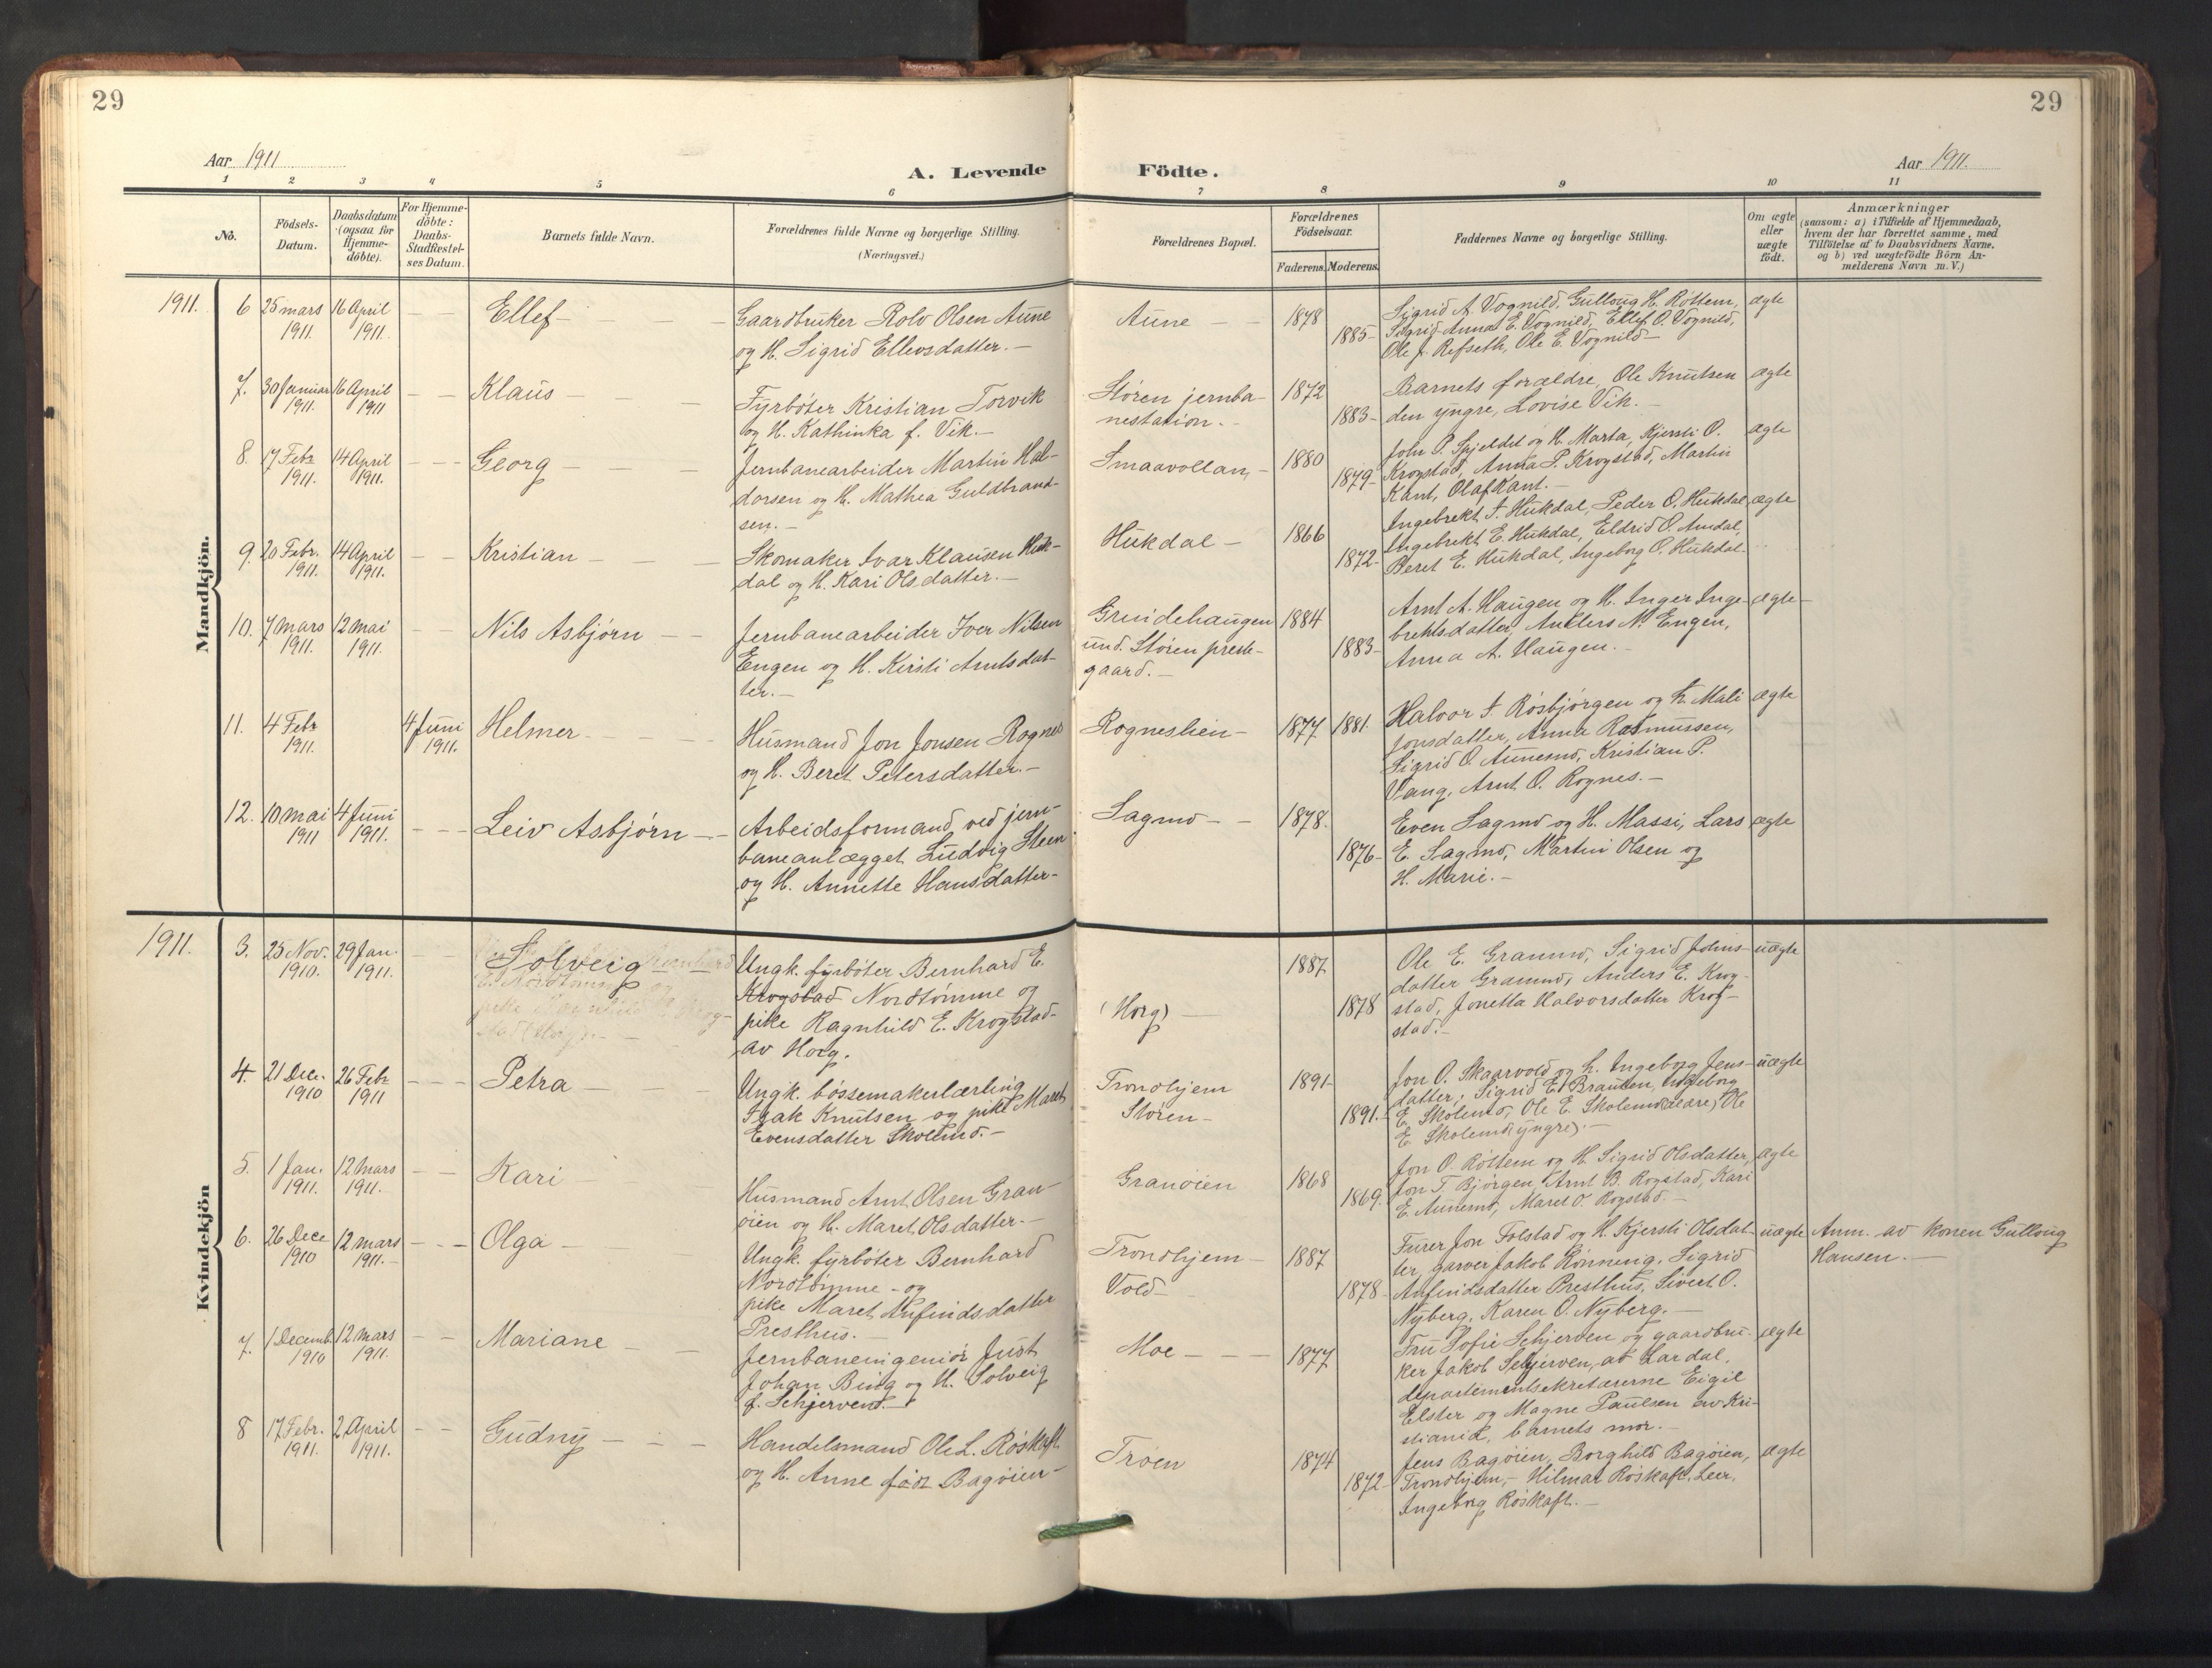 29
29
Aar 1911
A. Levende
Födte.
Aar 1911.
1 2 3 4 5 6 7 8 9 10 11
No.
Födsels-
Datum.
Daabsdatum
(ogsaa for
Hjemme-
döbte).
For Hjemme-
döbte:
Daabs-
Stadfæstel-
ses Datum.
Barnets fulde Navn.
Forældrenes fulde Navne og borgerlige Stilling.
(Næringsvei.)
Forældrenes Bopæl.
Forældrenes
Födselsaar.
Faderens. Moderens.
Faddernes Navne og borgerlige Stilling.
Om ægte
eller
uægte
födt.
Anmærkninger
(saasom: a) i Tilfælde af Hjemmedaab,
hvem der har forrettet samme, med
Tilföielse af to Daabsvidners Navne.
og b) ved uægtefödte Börn An-
melderens Navn m. V.)
Mandkjön.
1911.
6 25 mars 1911. 16 April 1911. - - Ellef -
Gaardbruker Rolv Olsen Aune
og H. Sigrid Ellevsdatter. -
Aune - 1878 1885-
Sigrid A. Vognild, Gulloug H. Røttem,
Sigrid Anna E. Vognild, Ellef O. Vognild,
Ole J. Refseth, Ole E. Vognild -
ægte
7. 30 Januar 1911. 16 April 1911 - - Klaus -
Fyrbøter Kristian Torvik
og H. Kathinka f. Vik. -
Støren jernba-
nestation. -
1872 1883-
Barnets forældre, Ole Knutsen
den yngre, Lovise Vik. -
ægte
8. 17 Febr 1911. 14 April 1911. - - Georg -
Jernbanearbeider Martin Hal-
dorsen og H. Mathea Guldbrand-
sen. -
Smaavollan, - 1880 1879-
John P. Spjeldet og H. Marta, Kjersti O.
Krogstad, Anna P. Krogstad, Martin
Kant, Olaf Kant. -
ægte
9. 20 Febr. 1911. 14 April 1911. - - Kristian -
Skomaker Ivar Klausen Huk-
dal og H. Kari Olsdatter. -
Hukdal - 1866 1872-
Ingebrekt I. Hukdal, Peder O. Hukdal,
Ingebrekt E. Hukdal, Eldrid O. Amdal,
Beret E. Hukdal, Ingeborg O. Hukdal.
ægte
10. 7 mars 1911. 12 mai 1911. - - Nils Asbjørn -
Jernbanearbeider Iver Nilsen
Engen og H. Kirsti Arntsdat-
ter. -
Grindehaugen
und. Støren preste-
gaard. -
1884 1883-
Arnt A. Haugen og H. Inger Inge-
brektsdatter, Anders N. Engen,
Anna A. Haugen. -
ægte -
11. 4 Febr 1911. 4 Juni 1911. Helmer -
Husmand Jon Jonsen Rognes
og H. Beret Petersdatter. -
Rogneslien - 1877 1881.
Halvor I. Røsbjørgen og h. Mali
Jonsdatter, Anna Rasmussen,
Sigrid O. Aunemo, Kristian P.
Vang, Arnt O. Rognes. -
ægte
12. 10 mai 1911 4 Juni 1911. - - Leiv Asbjørn -
Arbeidsformand ved jern-
baneanlægget Ludvig Steen
og H. Annette Hansdatter -
Sagmo - - 1878. 1876-
Even Sagmo og H. Massi, Lars
E. Sagmo, Martin Olsen og
H. Marie. -
ægte
Kvindekjön
1911.
3. 25 Nov. 1910. 29 Jan. 1911. - - Solveig -
Ungk. fyrbøter Bernhard E.
Krogstad Nordtømme og
pike Ragnhild E. Krogstad-
av Horg.
(Horg) - 1887 1878
Ole E. Granmo, Sigrid Johns-
datter Granmo, Anders E. Krog-
stad, Jonetta Halvorsdatter Krog-
stad. -
uægte
4. 21 Dec. 1910 26 Febr 1911 - - Petra -
Ungk. bøssemakerlærling
Isak Knutsen og pike Maret
Evensdatter Skolemo. -
Trondhjem
Støren -
1891- 1891.-
Jon O. Skaarvold og h. Ingeborg Jens-
datter; Sigrid E. Brauten, Ingeborg
E. Skolemo, Ole E. Skolemo (ældre), Ole
E. Skolemo (yngre). -
uægte
5. 1 Jan. 1911. 12 mars 1911. - - Kari -
Husmand Arnt Olsen Gran-
øien og H. Maret Olsdatter. -
Granøien 1868 1869.
Jon O. Røttem og H. Sigrid Olsdatter,
Jon T. Bjørgen, Arnt B. Rogstad, Kari
E. Aunemo, Maret O. Rogstad. -
ægte
6. 26 Dece 1910 12 mars 1911. - - Olga -
Ungk. fyrbøter Bernhard
Nordtømme - og
pike Maret Anfindsdatter
Presthus. -
Trondhjem -
Vold -
1887 1878-
Furer Jon Folstad og H. Kjersti Olsdat-
ter, garver Jakob Rønning, Sigrid
Anfindsdatter Presthus, Sivert O.
Nyberg, Karen O. Nyberg. -
uægte
Anm. av konen Gulloug
Hansen. -
7. 1 Decemb. 1910 12 mars 1911. - - Mariane -
Jernbaneingeniør Just
Johan Bing og H. Solveig
f. Schjerven. -
Moe - - - 1877
Fru Sofie Schjerven og gaardbru-
ker Jakob Schjerven, av Lardal,
departementsekretærerne Eigil
Elster og Magne Paulsen av Kri-
stiania, barnets mor. -
ægte
8 17 Febr. 1911. 2 April 1911. - - Gudny -
Handelsmand Ole L. Røskaft
og H. Anne født Bagøien -
Trøen 1874 1872-
Jens Bagøien, Borghild Bagøien,
Trondhjem, - Hilmar Røskaft, Leer,
Ingeborg Røskaft. -
ægte